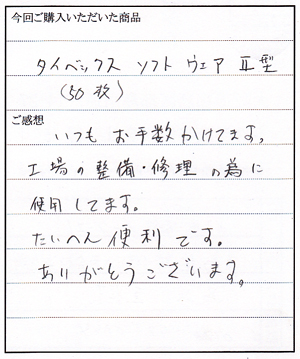 今回ご購入いただいた商品
タイベックス ソフト ウェア Ⅱ型
(50枚)
ご感想
いつも お手数かけてます。
工場の整備・修理の為に
使用してます。
たいへん便利です。
ありがとうございます。